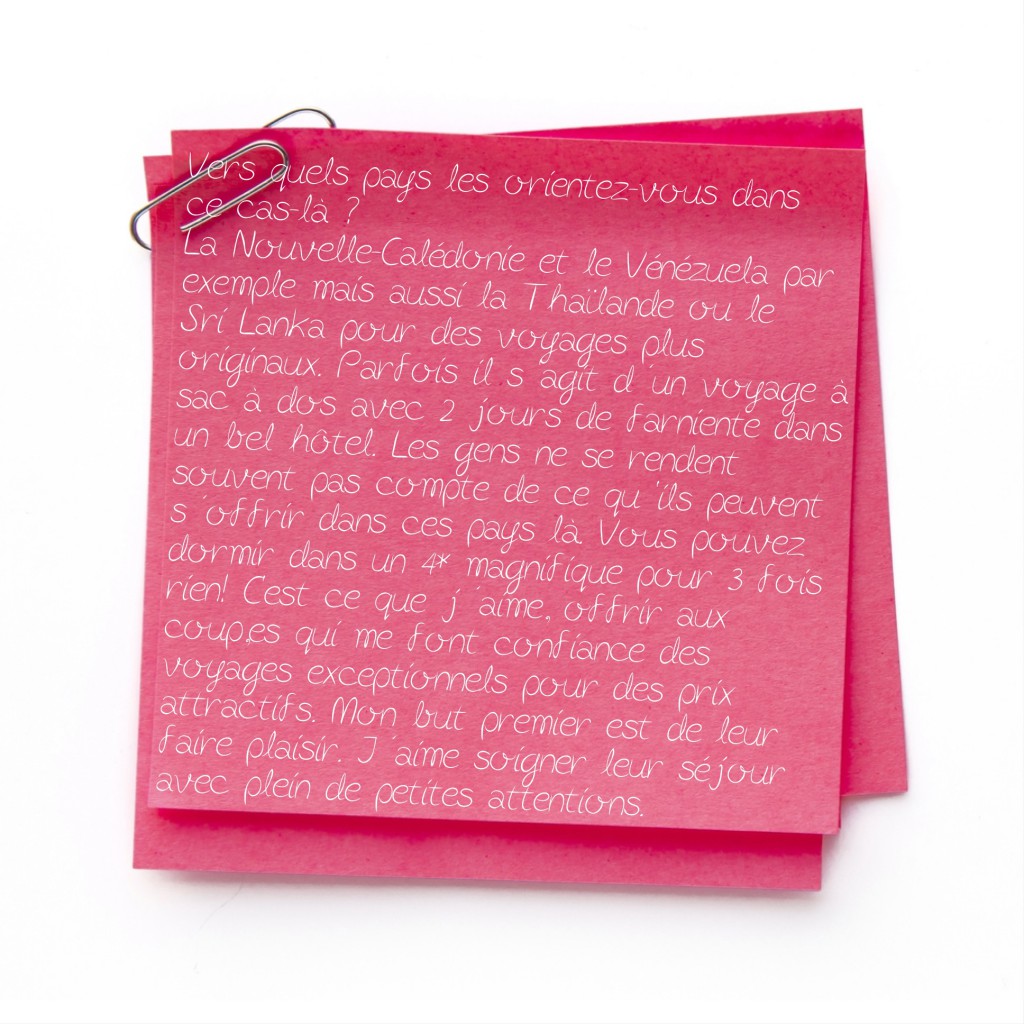 Vers quels pays les orientez-vous dans
ce cas-là ?
La Nouvelle-Calédonie et le Vénézuela par
exemple mais aussi la Thaïlande ou le
Sri Lanka pour des voyages plus
originaux. Parfois il s´agit d´un voyage à
sac à dos avec 2 jours de farniente dans
un bel hôtel. Les gens ne se rendent
souvent pas compte de ce qu´ils peuvent
s´offrir dans ces pays là. Vous pouvez
dormir dans un 4* magnifique pour 3 fois
rien! Cest ce que j´aime, offrir aux
coup,es qui me font confiance des
voyages exceptionnels pour des prix
attractifs. Mon but premier est de leur
faire plaisir. J´aime soigner leur séjour
avec plein de petites attentions.